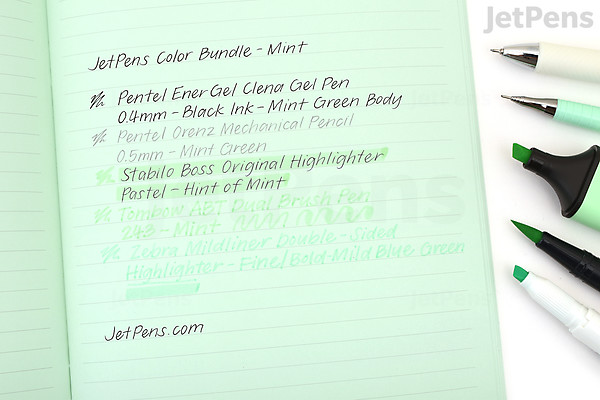 JetPens
JetPens Color Bundle - Mint
Pentel EnerGel Clena Gel Pen
0.4mm - Black Ink - Mint Green Body
Pentel Orenz Mechanical Pencil
0.5mm - Mint Green
Stabilo Boss Original Highlighter
Pastel - Hint of Mint
Tombow ABT Dual Brush Pen
243 - Mint
Zebra Mildliner Double - Sided
Highlighter - Fine/Bold - Mild Blue Green
JetPens.com